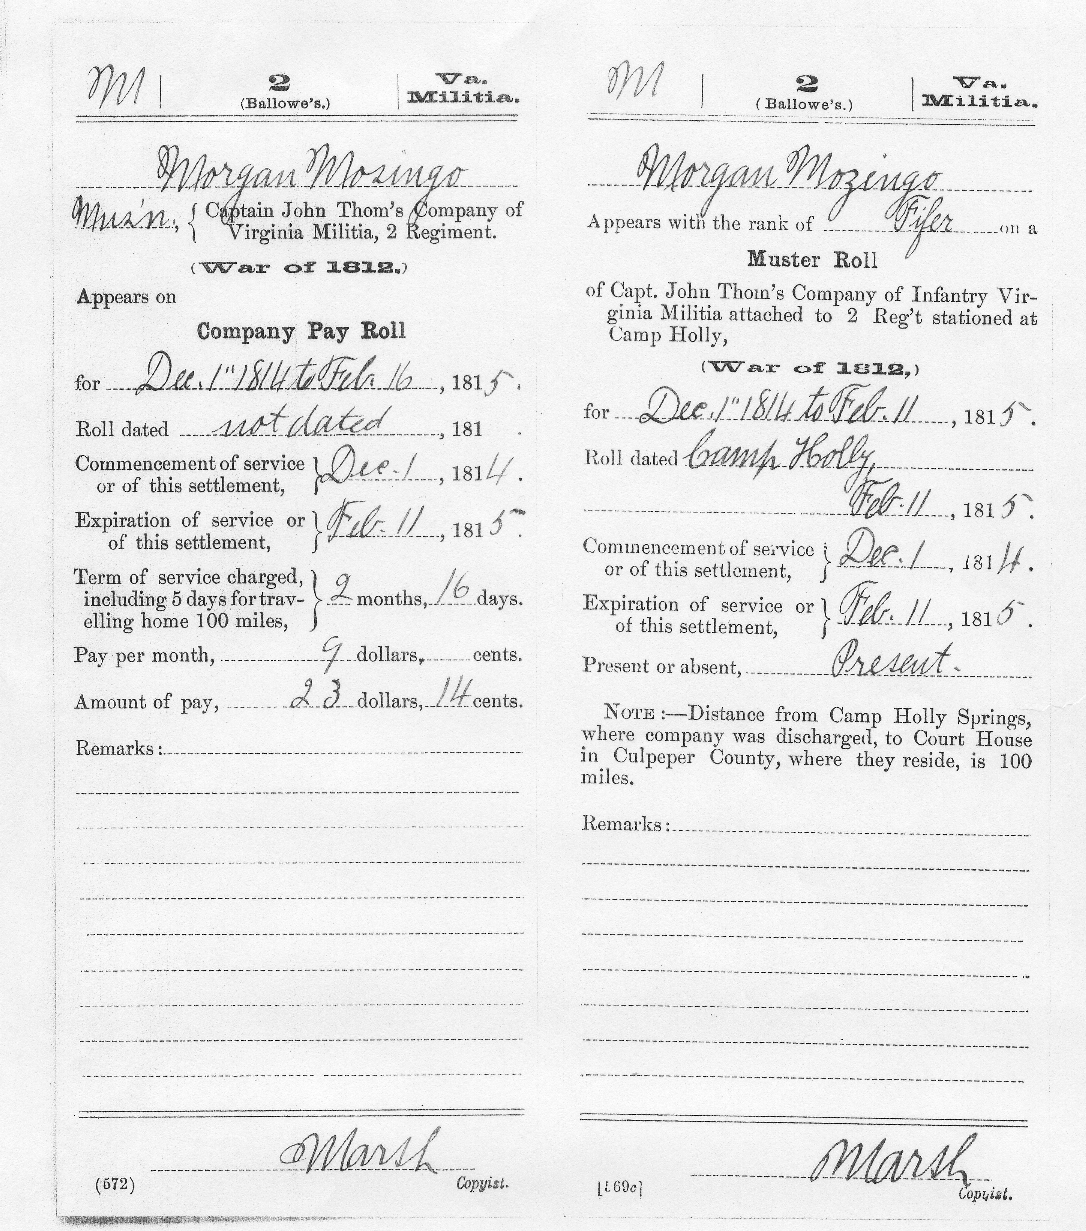 M 2 Va.
(Ballowe's.) Militia.
Morgan Mosingo
Mus'n, { Captain John Thom's Company of
Virginia Militia, 2 Regiment.
(War of 1812.)
Appears on
Company Pay Roll
for Dec. 1" 1814 to Feb. 16, 1815.
Roll dated not dated, 181 .
Commencement of service } Dec. 1, 1814.
or of this settlement,
Expiration of service or } Feb. 11, 1815.
of this settlement,
Term of service charged,
including 5 days for trav- } 2 months, 16 days.
elling home 100 miles,
Pay per month, 9 dollars, cents.
Amount of pay, 23 dollars, 14 cents.
Remarks:
Marsh
(572) Copyist.
M 2 Va.
(Ballowe's.) Militia.
Morgan Mozingo
Appears with the rank of Fifer on a
Muster Roll
of Capt. John Thom's Company of Infantry Vir-
ginia Militia attached to 2 Reg't stationed at
Camp Holly,
(War of 1812,)
for Dec. 1" 1814 to Feb. 11, 1815.
Roll dated Camp Holly,
Feb. 11, 1815.
Commencement of service } Dec. 1, 1814.
or of this settlement,
Expiration of service or } Feb. 11, 1815.
of this settlement,
Present or absent, Present.
NOTE:—Distance from Camp Holly Springs,
where company was discharged, to Court House
in Culpeper County, where they reside, is 100
miles.
Remarks:
Marsh
Copyist.